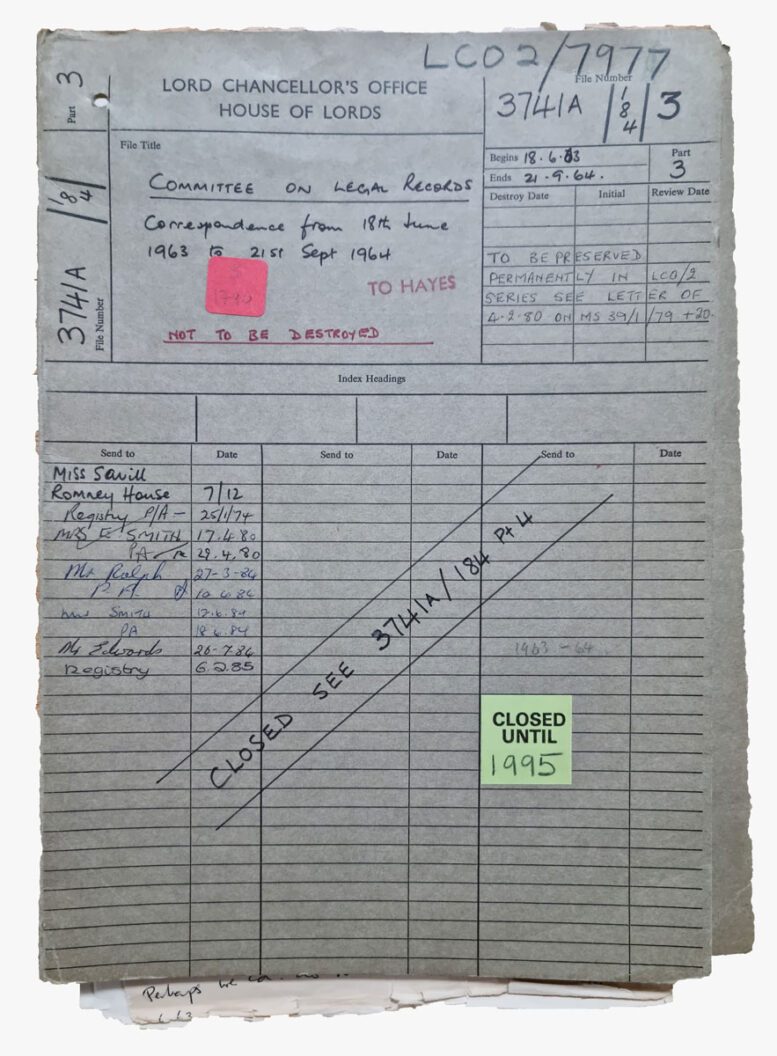 LCO 2/7977
Part 3
LORD CHANCELLOR'S OFFICE
HOUSE OF LORDS
File Number
3741A /184/ 3
File Title
COMMITTEE ON LEGAL RECORDS
Correspondence from 18th June
1963 to 21st Sept 1964
TO HAYES
NOT TO BE DESTROYED
Begins 18.6.63
Ends 21.9.64.
Part
3
Destroy Date Initial Review Date
TO BE PRESERVED
PERMANENTLY IN LCO/2
SERIES SEE LETTER OF
4.2.80 ON MS 39/1/79 +20.
File Number 3741A /184/
Index Headings
Send to Date Send to Date Send to Date
Miss Savill
Romney House 7/12
Registry P/A - 25/1/74
MRS E SMITH 17.4.80
PA 29.4.80
Mr Ralph 27-3-84
P.A.
SMITH
PA
Mr Edwards 26-7-84
Registry 6.2.85
CLOSED SEE 3741A/184 Pt 4
1963-64
CLOSED
UNTIL
1995
Perhaps we